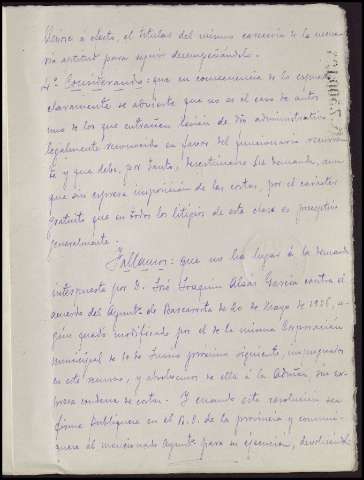 llevose a efecto, el titular del mismo careciera de la necesa-
ria aptitud para seguir desempeñándolo.
4º Considerando: que en consecuencia de lo expuesto
claramente se advierte que no es el caso de autos
uno de los que entrañan lesión de dro administrativo
legalmente reconocido en favor del funcionario recurren-
te y que debe, por tanto, desestimarse la demanda, aun-
que sin expresa imposición de las costas, por el carácter
gratuito que en todos los litigios de esta clase es preceptivo
generalmente.
Fallamos: que no ha lugar á la demanda
interpuesta por D. José Joaquin García contra el
acuerdo del Ayuntº de Barcarrota de 20 de Mayo de 1936, se-
gún quedó modificado por el de la misma Corporación
municipal de 10 de Junio proximo siguiente, impugnados
en este recurso, y absolvemos de ella á la Admón, sin ex-
presa condena de costas. Y cuando esta resolución sea
firme publíquese en el B.O. de la provincia y comuni-
quese al mencionado Ayuntº para su ejecución, devolviendo